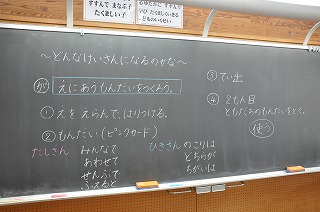 すすんで まなぶ子
たくましい子
～どんなけいさんになるのかな～
が えにあうもんだいをつくろう。
① えを えらんで、はりつける。
② もんだい(ピンクカード)
たしざん みんなで
あわせて
ぜんぶで
ふえると
ひきざん のこりは
どちらが
ちがいは
③ てい出
④ 2もん目
ともだちのもんだいをとく。
使う